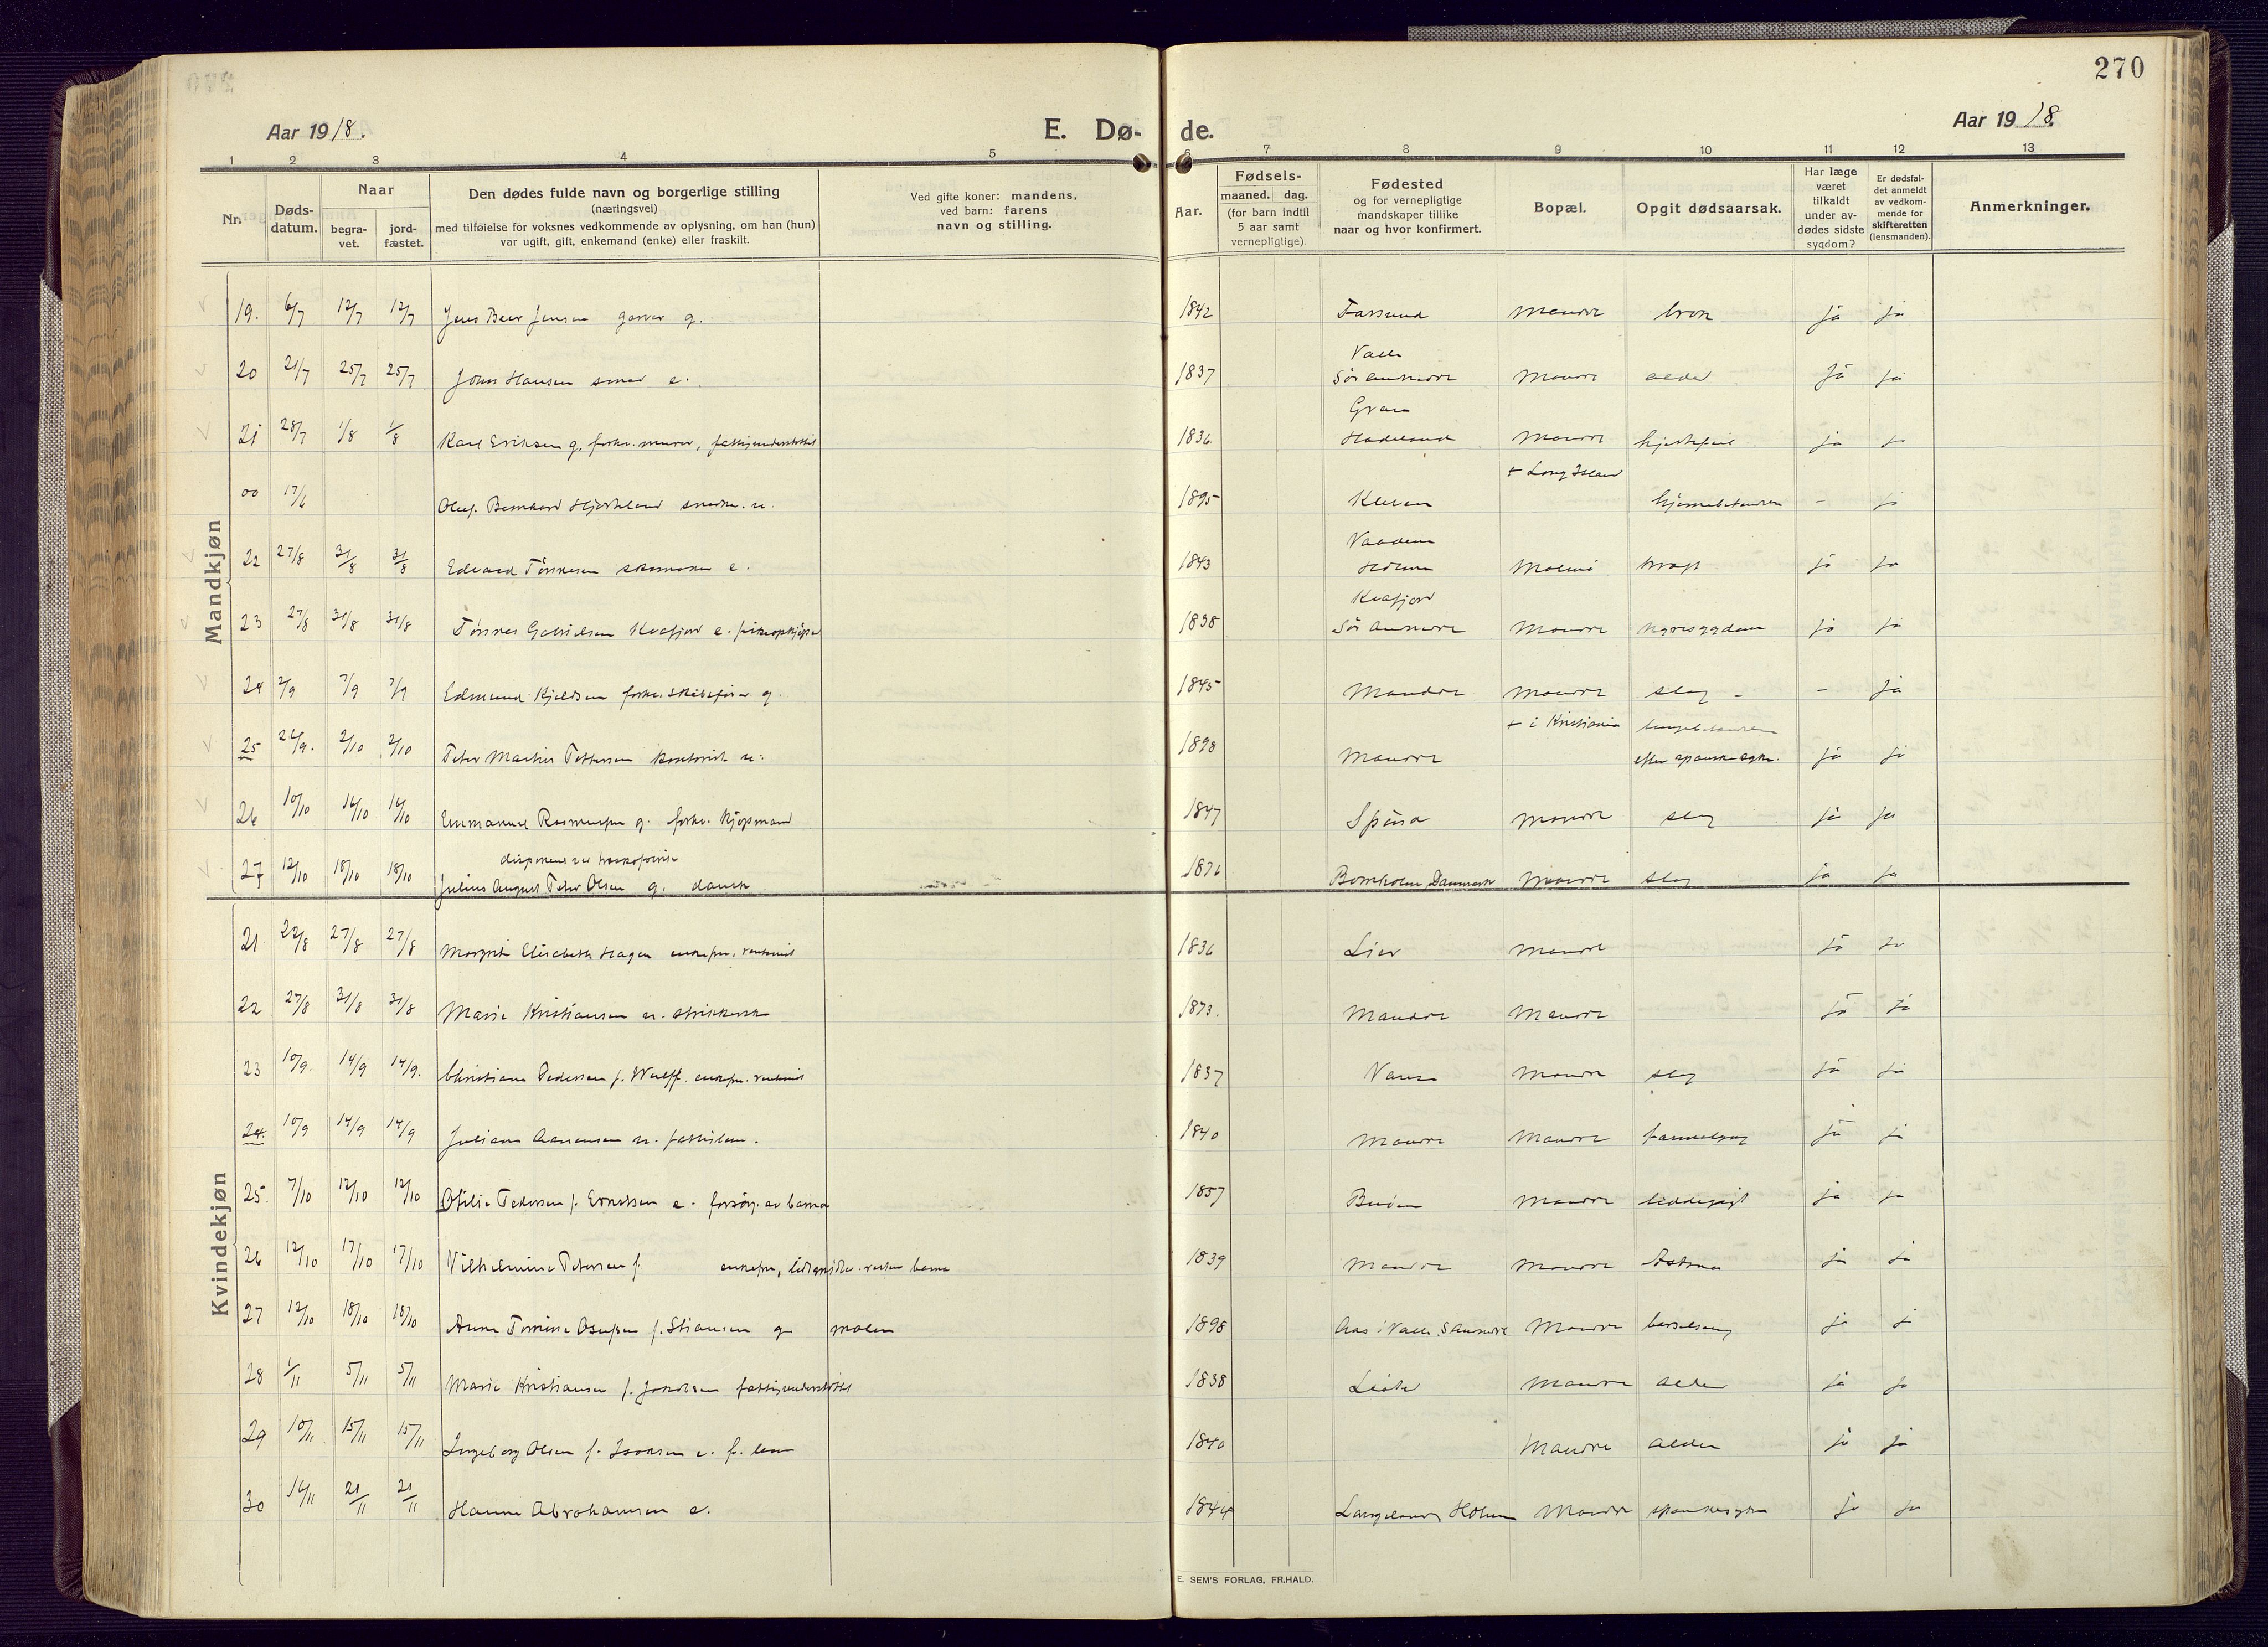 270
Aar 1918.
E. Dø- de.
Aar 1918.
1 2 3 4 5 6 7 8 9 10 11 12 13
Nr.
Døds-
datum.
Naar
begra-
vet.
jord-
fæstet.
Den dødes fulde navn og borgerlige stilling
(næringsvei)
med tilføielse for voksnes vedkommende av oplysning, om han (hun)
var ugift, gift, enkemand (enke) eller fraskilt.
Ved gifte koner: mandens,
ved barn: farens
navn og stilling.
Aar.
Fødsels-
maaned. dag.
(for barn indtil
5 aar samt
vernepligtige)
Fødested
og for vernepligtige
mandskaper tillike
naar og hvor konfirmert.
Bopæl.
Opgit dødsaarsak.
Har læge
været
tilkaldt
under av-
dødes sidste
sygdom?
Er dødsfal-
det anmeldt
av vedkom-
mende for
skifteretten
(lensmanden).
Anmerkninger.
Mandkjøn
19. 6/7 12/7 12/7 Jens Beer Jensen garver g. 1842 Farsund Mandal ja ja
Valle
20 21/7 25/7 25/7 John Hansen smed e. 1837 Sør Audnedal Mandal alder ja ja
Gran
21 28/7 1/8 1/8 Karl Eriksen g. forhv. murer, fattigunderstøttet 1836 Hadeland Mandal hjertefeil ja ja
+ Long Island
00 17/6 Oluf Bernhard Hjorteland snedker u. 1895 Kleven - ja
22 27/8 31/8 31/8 Edvard Tønnesen skomaker e. 1843 Holum Malmø ja ja
Kvafjord
23 27/8 31/8 31/8 Tønnes Gabrielsen Kvafjord e. fiskeopkjøper 1838 Sør Audnedal Mandal nyresygdom ja ja
24 2/9 7/9 7/9 Edmund Kjeldsen forhv. skibsfører g. 1845 Mandal Mandal slag - - ja
+ i Kristiania lungebetændelse
25 26/9. 2/10 2/10 Peter Martin Pettersen kontorist u. 1898 Mandal efter spanske syke. ja ja
26 10/10 16/10 16/10 Emmanuel Rasmussen g. forhv. kjøpmand 1847 Spind Mandal slag ja ja
27 12/10 18/10 18/10 Julius August Peter Olsen g. dansk 1876 Bornholm Danmark Mandal slag ja ja
Kvindekjøn
21 22/8 27/8 27/8 Margrit Elisabeth Hagen enkefru, rentenist 1836 Lier Mandal ja ja
22 27/8 31/8 31/8 Marie Kristiansen u. strikkerske 1873. Mandal Mandal ja ja
23 10/9. 14/9 14/9. Christiane Pedersen f. Wulff. enkefru. rentenist 1837 Vanse Mandal slag ja ja
24. 10/9 14/9 14/9 Juliane Aanensen u. fattiglem. 1840 Mandal Mandal ja ja
25. 7/10 12/10 12/10 Otilie Pedersen f. Errettsen e. forsørg. av barna 1857 Buøen Mandal leddegigt ja ja
26 12/10 17/10 17/10 Vilhelmine Petersen f. enkefru, barna 1839 Mandal Mandal Astma ja ja
27 12/10 18/10 18/10 Anne Tomine Osufsen f. Stiansen g maler 1898 Aas i Valle S Audnedal Mandal barselseng ja ja
28 1/11 5/11 5/11 Marie Kristiansen f. Jakobsen fattigunderstøttet 1838 Mandal alder ja ja
29 10/11 15/11 15/11 Ingeborg Olsen f. Isaksen e. f. lem 1840 Mandal alder ja ja
30 16/11 21/11 21/11 Hanne Abrahamsen e. 1844 Langeland, Holum Mandal spanskesyke ja ja
E. SEM'S FORLAG, FR.HALD.